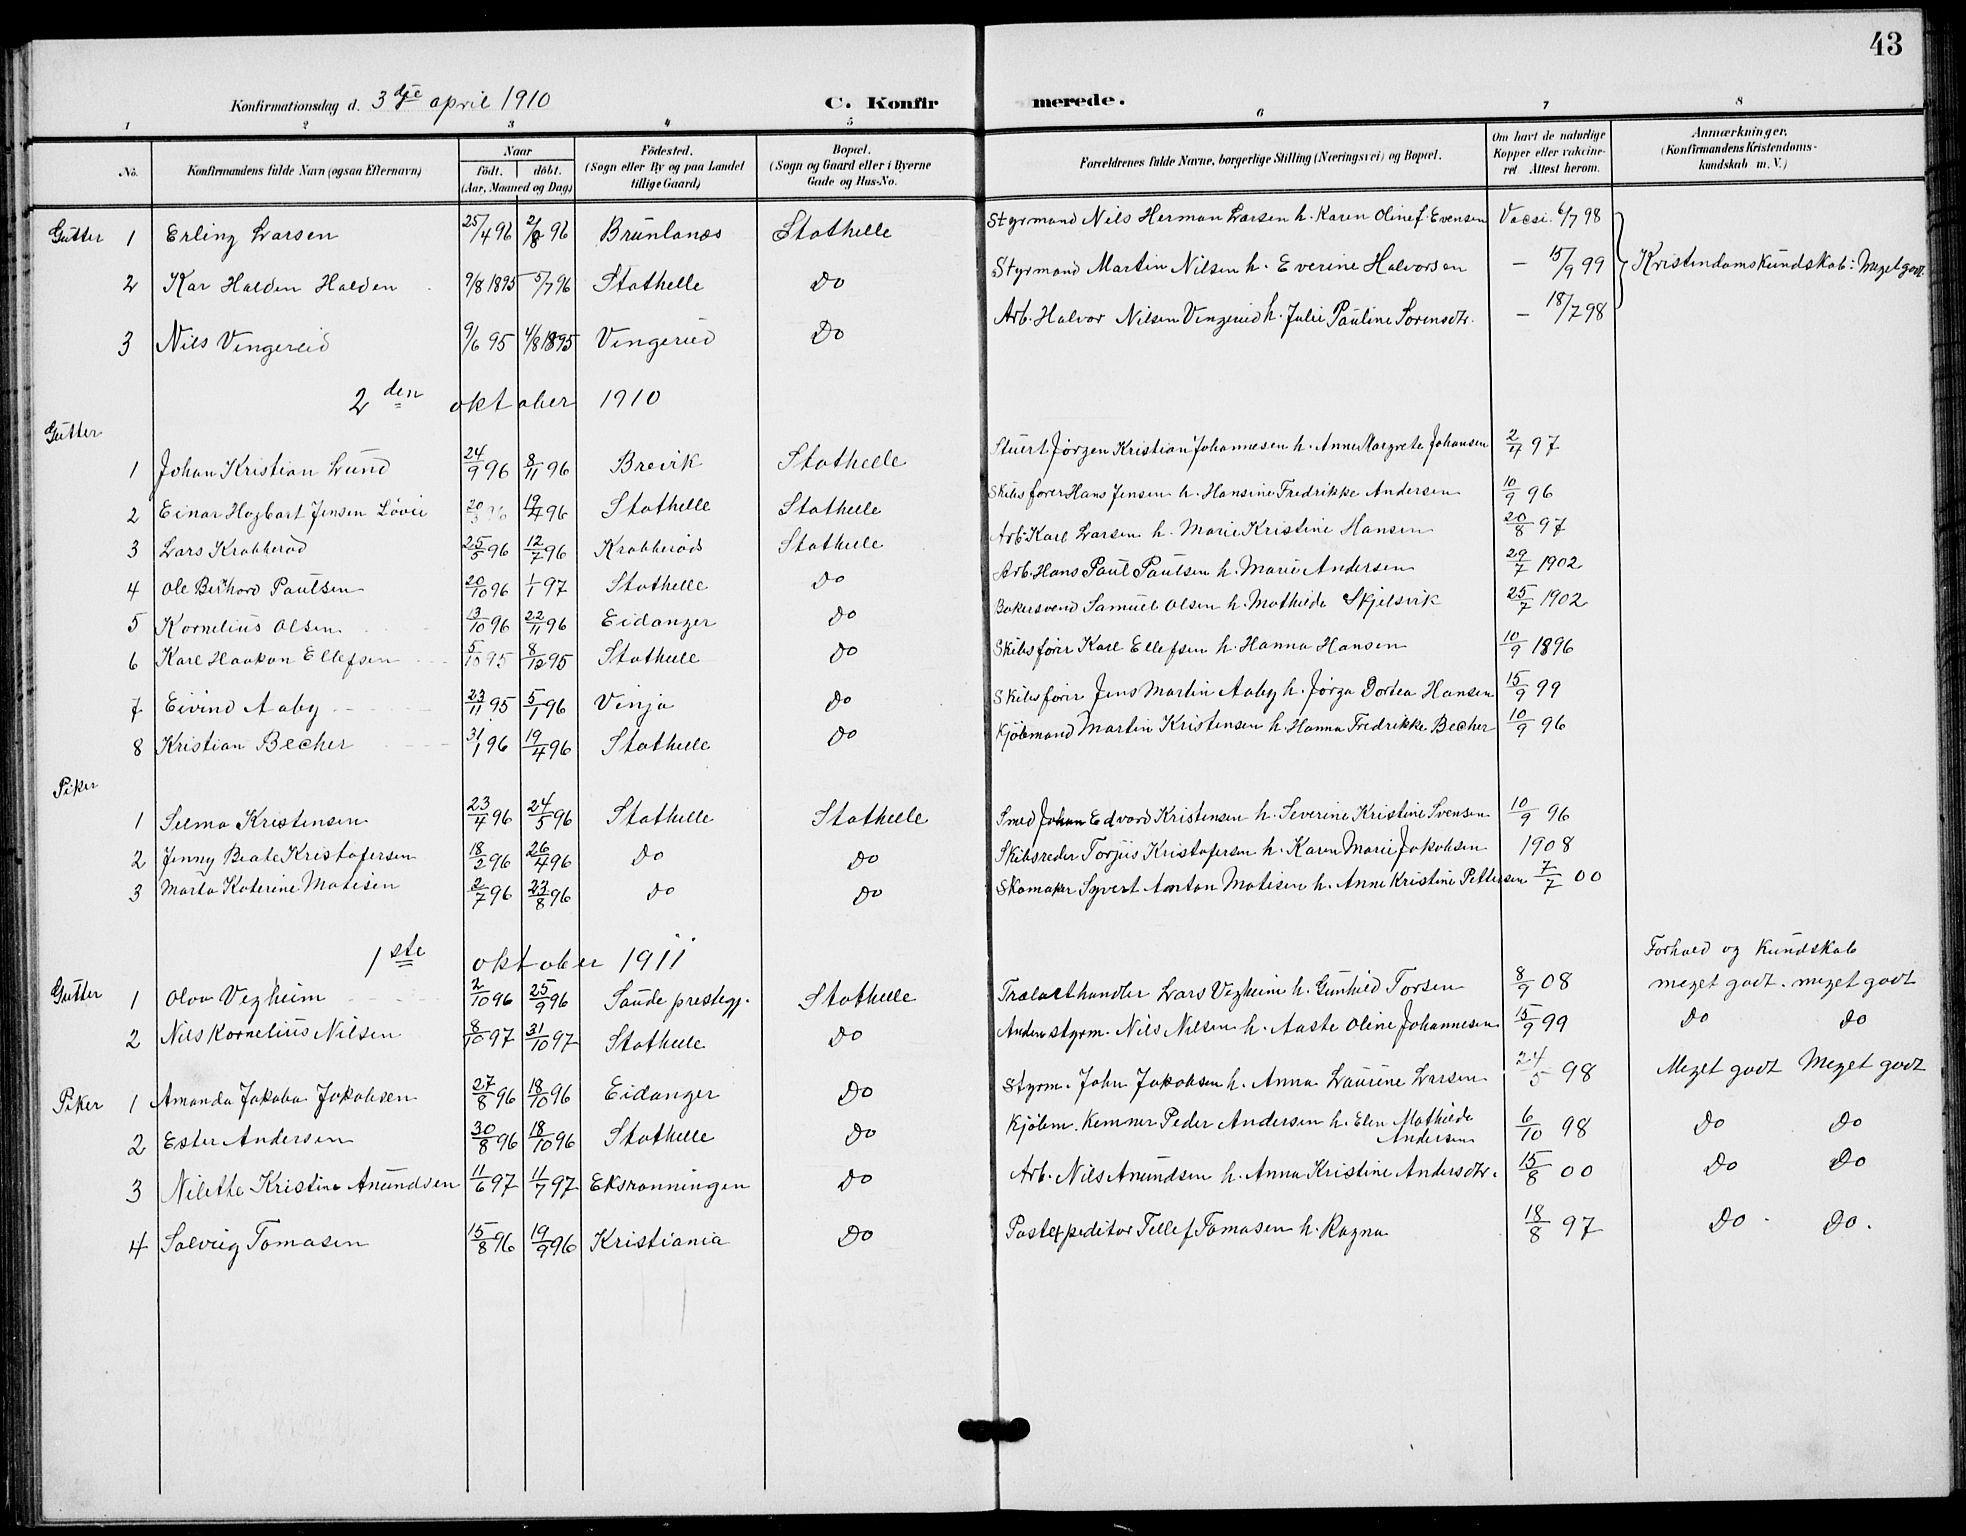 43
Konfirmationsdag d. 3dje april 1910 C. Konfirmerede.
1 2 3 4 5 6 7 8
No. Konfirmandens fulde Navn (ogsaa Efternavn) Naar født. døbt. (Aar, Maaned og Dag) Fødested. (Sogn eller By og paa Landet tillige Gaard) Bopæl. (Sogn og Gaard eller i Byerne Gade og Hus-No. Forældrenes fulde Navne, borgerlige Stilling (Næringsvei) og Bopæl. Om havt de naturlige Kopper eller vakcineret Attest herom. Anmærkninger. (Konfirmandens Kristendomskundskab m. V.)
Gutter 1 Erling Larsen 25/4 96 2/8 96 Brunlanæs Stathelle Styrmand Nils Herman Larsen h. Karen Oline f. Evensen Vacsi. 6/7 98
2 Kar Halden Halden 9/8 1895 5/7 96 Stathelle Do Styrmand Martin Nilsen h. Everine Halvorsen — 15/9 99 Kristendomskundskab: Meget godt
3 Nils Vingereid 9/6 95 4/8 1895 Vingereid Do Arb. Halvor Nilsen Vingereid h. Julie Pauline Sørensdtr. — 18/7 98
2den oktober 1910
Gutter
1 Johan Kristian Lund 24/9 96 8/11 96 Brevik Stathelle Stuert Jørgen Kristian Johannesen h. Anne Margrete Johansen 2/4 97
2 Einar Hagbart Jensen Løvie 20/3 96 19/4 96 Stathelle Stathelle Skibsfører Hans Jensen h. Hansine Fredrikke Andersen 10/9 96
3 Lars Krabberød 25/5 96 12/7 96 Krabberød Stathelle Arb. Karl Larsen h. Marie Kristine Hansen 20/8 97
4 Ole Berhard Paulsen 20/10 96 1/1 97 Stathelle Do Arb. Hans Paul Paulsen h. Marie Andersen 29/7 1902
5 Kornelius Olsen 13/10 96 22/11 96 Eidanger Do Bakersvend Samuel Olsen h. Mathilde Skjelsvik 25/7 1902
6 Karl Haakon Ellefsen 5/10 95 8/12 95 Stathelle Do Skibsfører Karl Ellefsen h. Hanna Hansen 10/9 1896
7 Eivind Aaby 23/11 95 5/1 96 Vinja Do Skibsfører Jens Martin Aaby h. Jørga Dortea Hansen 15/9 99
8 Kristian Becher 31/1 96 19/4 96 Stathelle Do Kjøbmand Martin Kristensen h. Hanna Fredrikke Becher 10/9 96
Piker
1 Selma Kristensen 23/4 96 24/5 96 Stathelle Stathelle Smed Johan Edvard Kristensen h. Severine Kristine Svensen 10/9 96
2 Jenny Beate Kristofersen 18/2 96 26/4 96 Do Do Skibsreder Torjus Kristofersen h. Karen Marie Jakobsen 1908
3 Marta Katerine Matisen 2/7 96 23/8 96 Do Do Skomaker Syvert Anton Matisen h. Anne Kristine Pettersen 7/7 00
1ste oktober 1911 Forhold og kundskab
Gutter 1 Olav Vegheim 2/10 96 25/9 96 Saude prestegj. Stathelle Trælasthandler Lars Vegheim h. Gunhild Torsen 8/9 08 meget godt. meget godt
2 Nils Kornelius Nilsen 8/10 97 31/10 97 Stathelle Do Andenstyrm. Nils Nilsen h. Aaste Oline Johannesen 15/9 99 Do Do
Piker 1 Amanda Jakoba Jakobsen 27/8 96 18/10 96 Eidanger Do Styrm. John Jakobsen h. Anna Laurine Larsen 24/5 98 Meget godt Meget godt
2 Ester Andersen 30/8 96 18/10 96 Stathelle Do Kjøbm. Kemner Peder Andersen h. Elen Mathilde Andersen 6/10 98 Do Do
3 Nilethe Kristine Anundsen 11/6 97 11/7 97 Eksrønningen Do Arb. Nils Anundsen h. Anna Kristine Andersdtr. 15/8 00 Do Do
4 Solveig Tomasen 15/8 96 19/9 96 Kristiania Do Postexpeditør Tellef Tomasen h. Ragna 18/8 97 Do. Do.